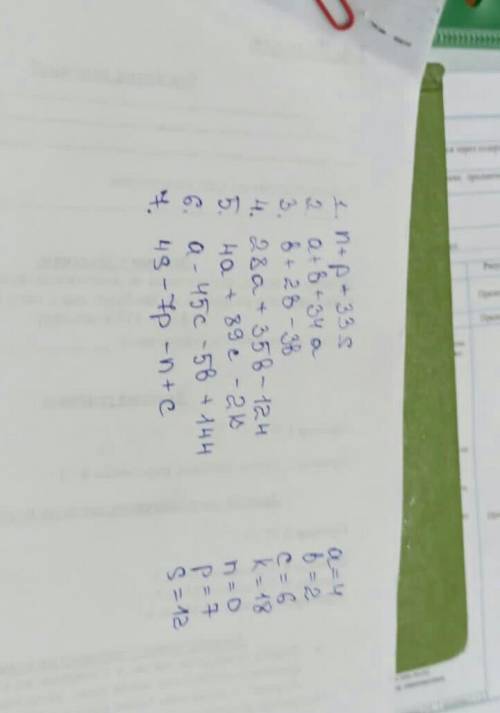 1. n + p + 33s
2. a + b + 34a
3. b + 2b - 3b
4. 28a + 35b - 124
5. 4a + 89c - 2k
6. a - 45c - 5b + 144
7. 4s - 7p - n + c
a = 4
b = 2
c = 6
k = 18
n = 0
p = 7
s = 12